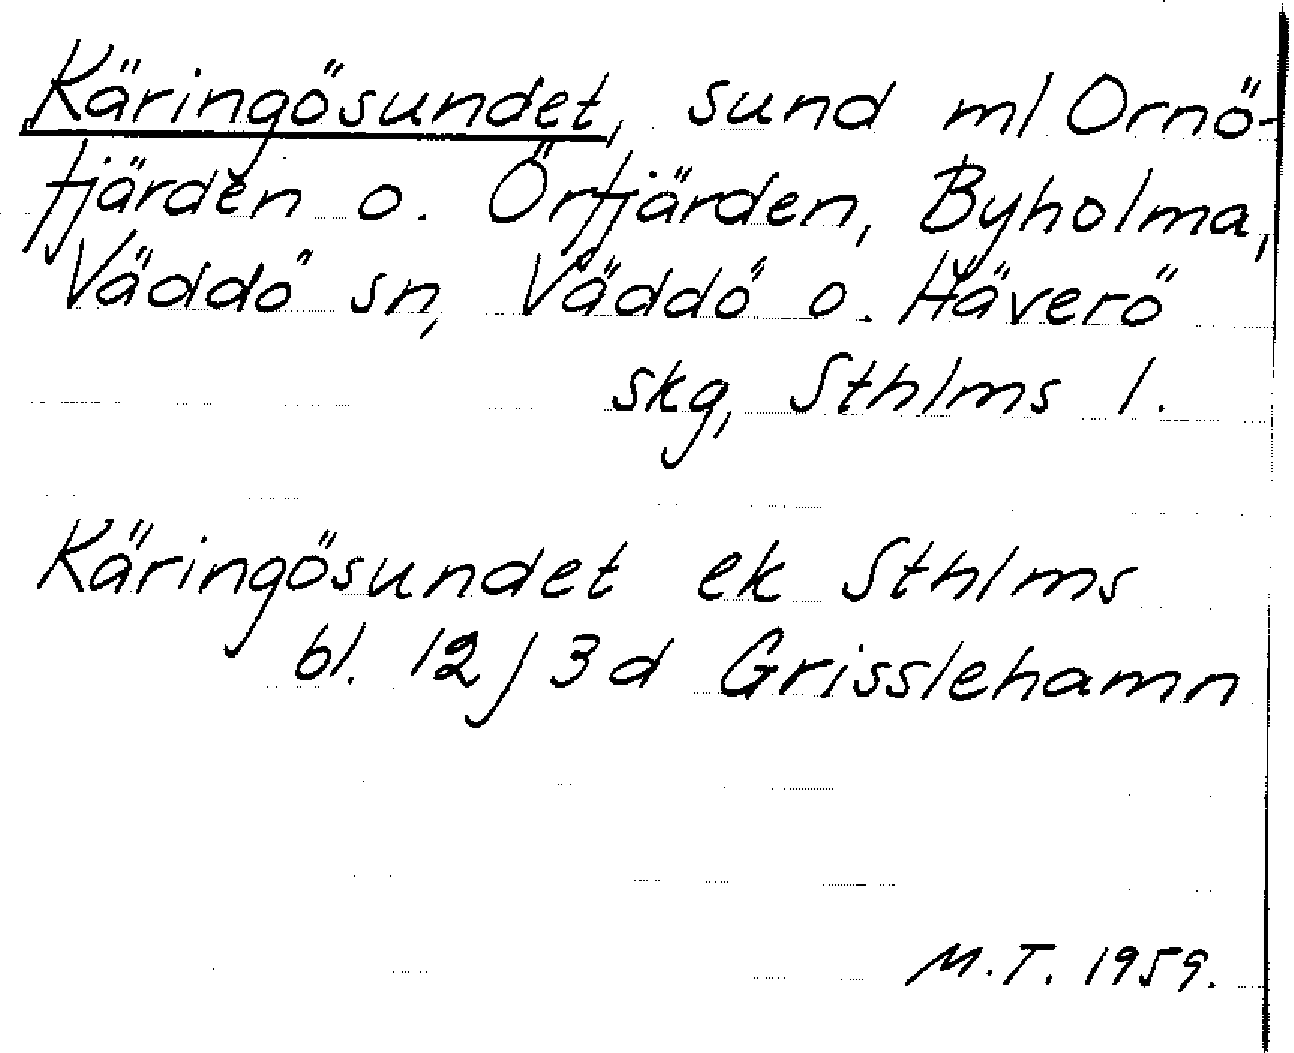 Käringösundet, sund ml Ornö-
fjärden o. Örfjärden, Byholma,
Väddö sn, Väddö o. Häverö
skg, Sthlms l.
Käringösundet ek Sthlms
bl. 12 J 3d Grisslehamn
M.T. 1959.